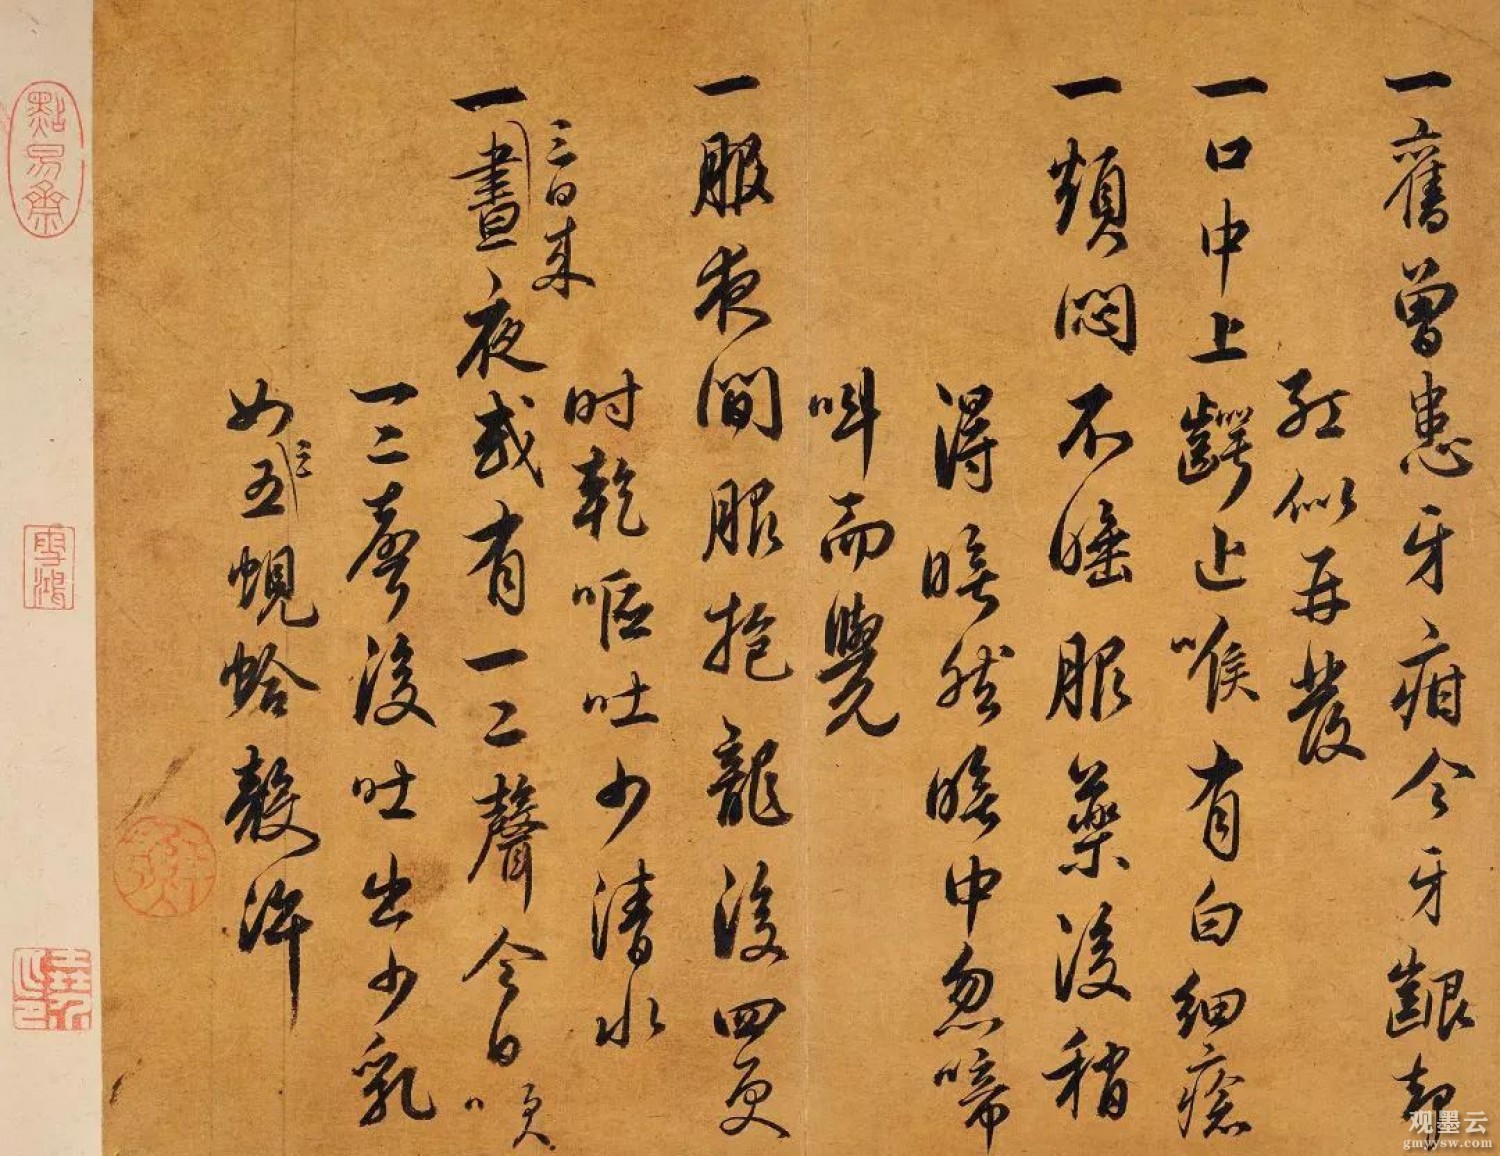 一舊曾患牙疳今牙齦却
紅似再發
一口中上齶上喉有白細瘡
一煩悶不睡服藥後稍
得睡然睡中忽啼
叫而覺
一服夜間服抱龍後四更
時乾嘔吐少清水
三日来
一晝夜或有一二聲今日
一二聲後吐出少乳
如五蜆蛤殼許
三
點易齋
雪鴻
观墨云
gmyysw.com